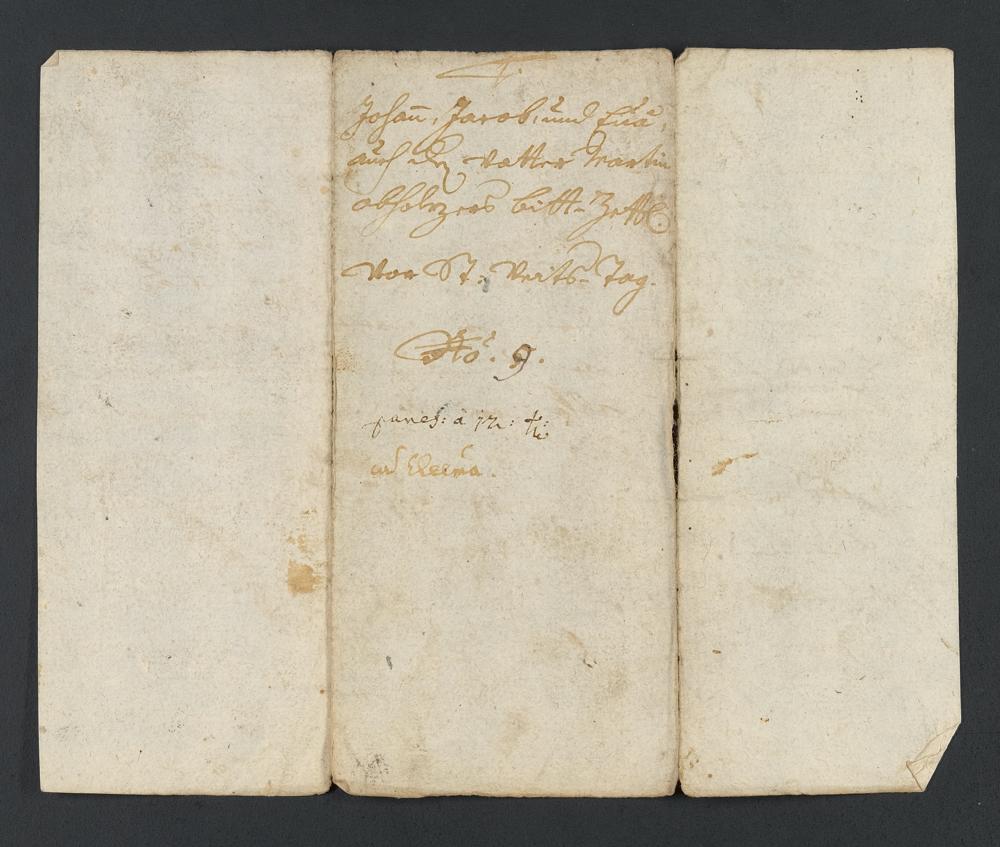 Johann, Jacob, und Eua,
auch der Vatter Martin
abholzers bitt-Zettl.
Vor St: Veits-Tag.
No. 9.
panes: à 12:
ad Eleem̄a.